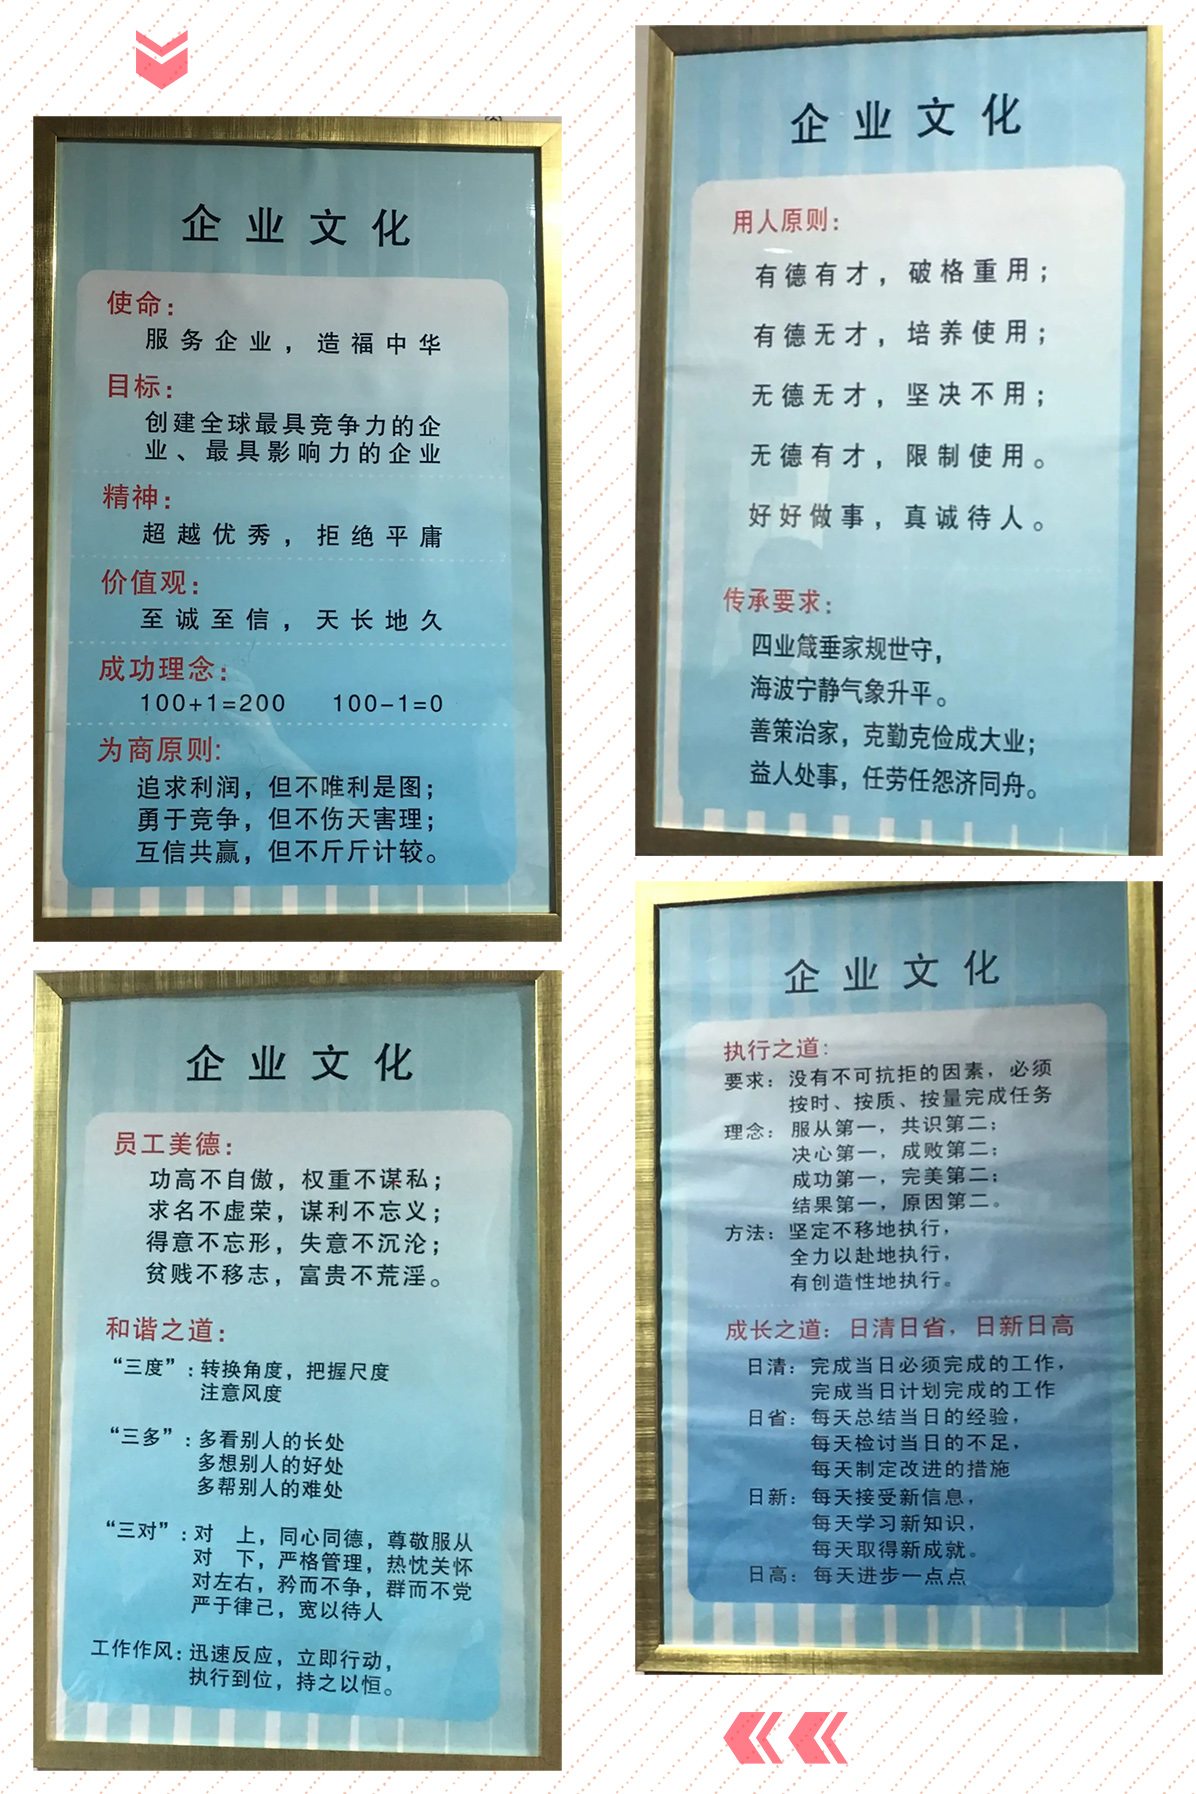 企业文化
使命：
服务企业，造福中华
目标：
创建全球最具竞争力的企
业、最具影响力的企业
精神：
超越优秀，拒绝平庸
价值观：
至诚至信，天长地久
成功理念：
100+1=200 100-1=0
为商原则：
追求利润，但不唯利是图；
勇于竞争，但不伤天害理；
互信共赢，但不斤斤计较。
企业文化
用人原则：
有德有才，破格重用；
有德无才，培养使用；
无德无才，坚决不用；
无德有才，限制使用。
好好做事，真诚待人。
传承要求：
四业箴垂家规世守，
海波宁静气象升平。
善策治家，克勤克俭成大业；
益人处事，任劳任怨济同舟。
企业文化
员工美德：
功高不自傲，权重不谋私；
求名不虚荣，谋利不忘义；
得意不忘形，失意不沉沦；
贫贱不移志，富贵不荒淫。
和谐之道：
“三度”：转换角度，把握尺度
注意风度
“三多”：多看别人的长处
多想别人的好处
多帮别人的难处
“三对”：对 上，同心同德，尊敬服从
对 下，严格管理，热忱关怀
对左右，矜而不争，群而不党
严于律己，宽以待人
工作作风：迅速反应，立即行动，
执行到位，持之以恒。
企业文化
执行之道：
要求：没有不可抗拒的因素，必须
按时、按质、按量完成任务
理念：服从第一，共识第二；
决心第一，成败第二；
成功第一，完美第二；
结果第一，原因第二。
方法：坚定不移地执行，
全力以赴地执行，
有创造性地执行。
成长之道：日清日省，日新日高
日清：完成当日必须完成的工作，
完成当日计划完成的工作
日省：每天总结当日的经验，
每天检讨当日的不足，
每天制定改进的措施
日新：每天接受新信息，
每天学习新知识，
每天取得新成就。
日高：每天进步一点点